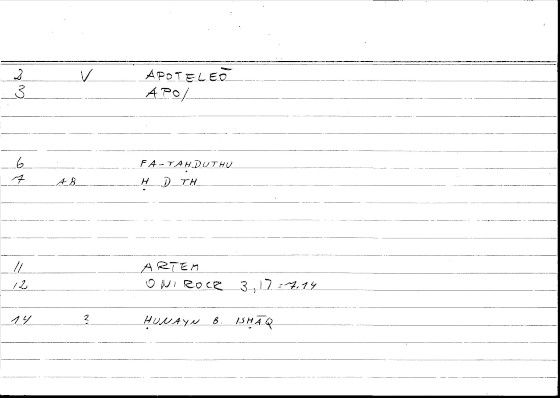 2 V APOTELEŌ
3 APO/
6 FA-TAḤDUTHU
7 AB Ḥ D TH
11 ARTEM
12 ONIROCR 3,17 = 7.14
14 ? ḤUNAYN B ISḤĀQ